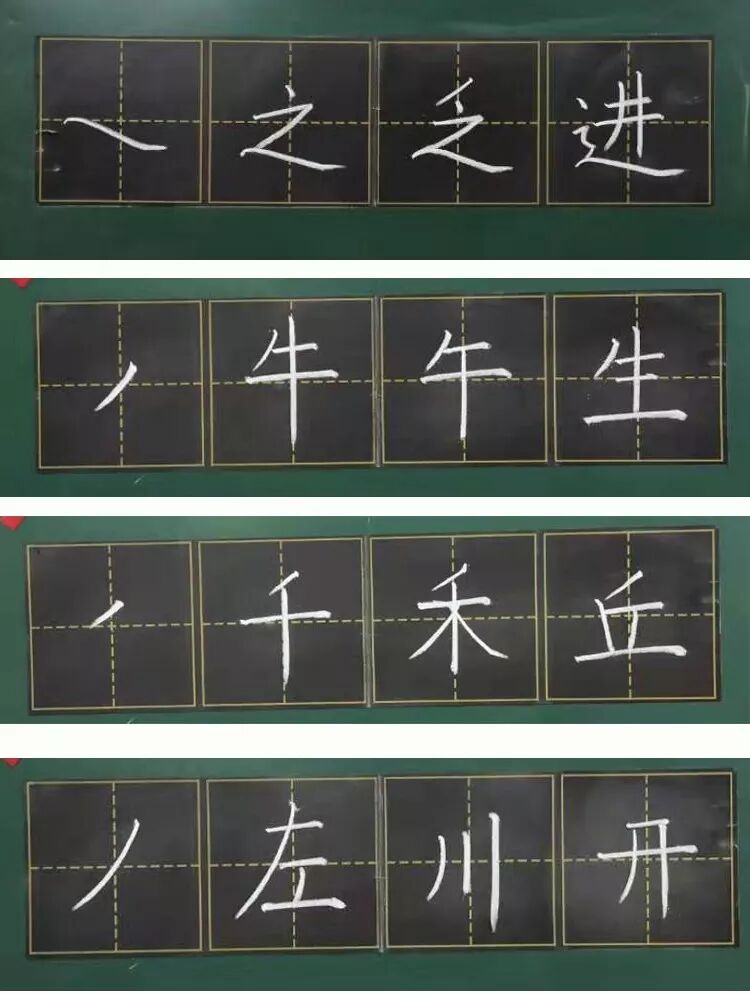 ㇏ 之 乏 进
丿 牛 午 生
丿 千 禾 丘
丿 左 川 开